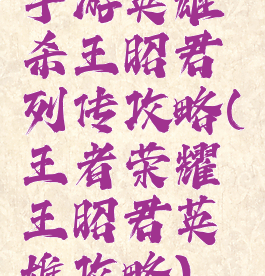 手游英雄
杀王昭君
列传攻略(
王者荣耀
王昭君英
雄攻略)